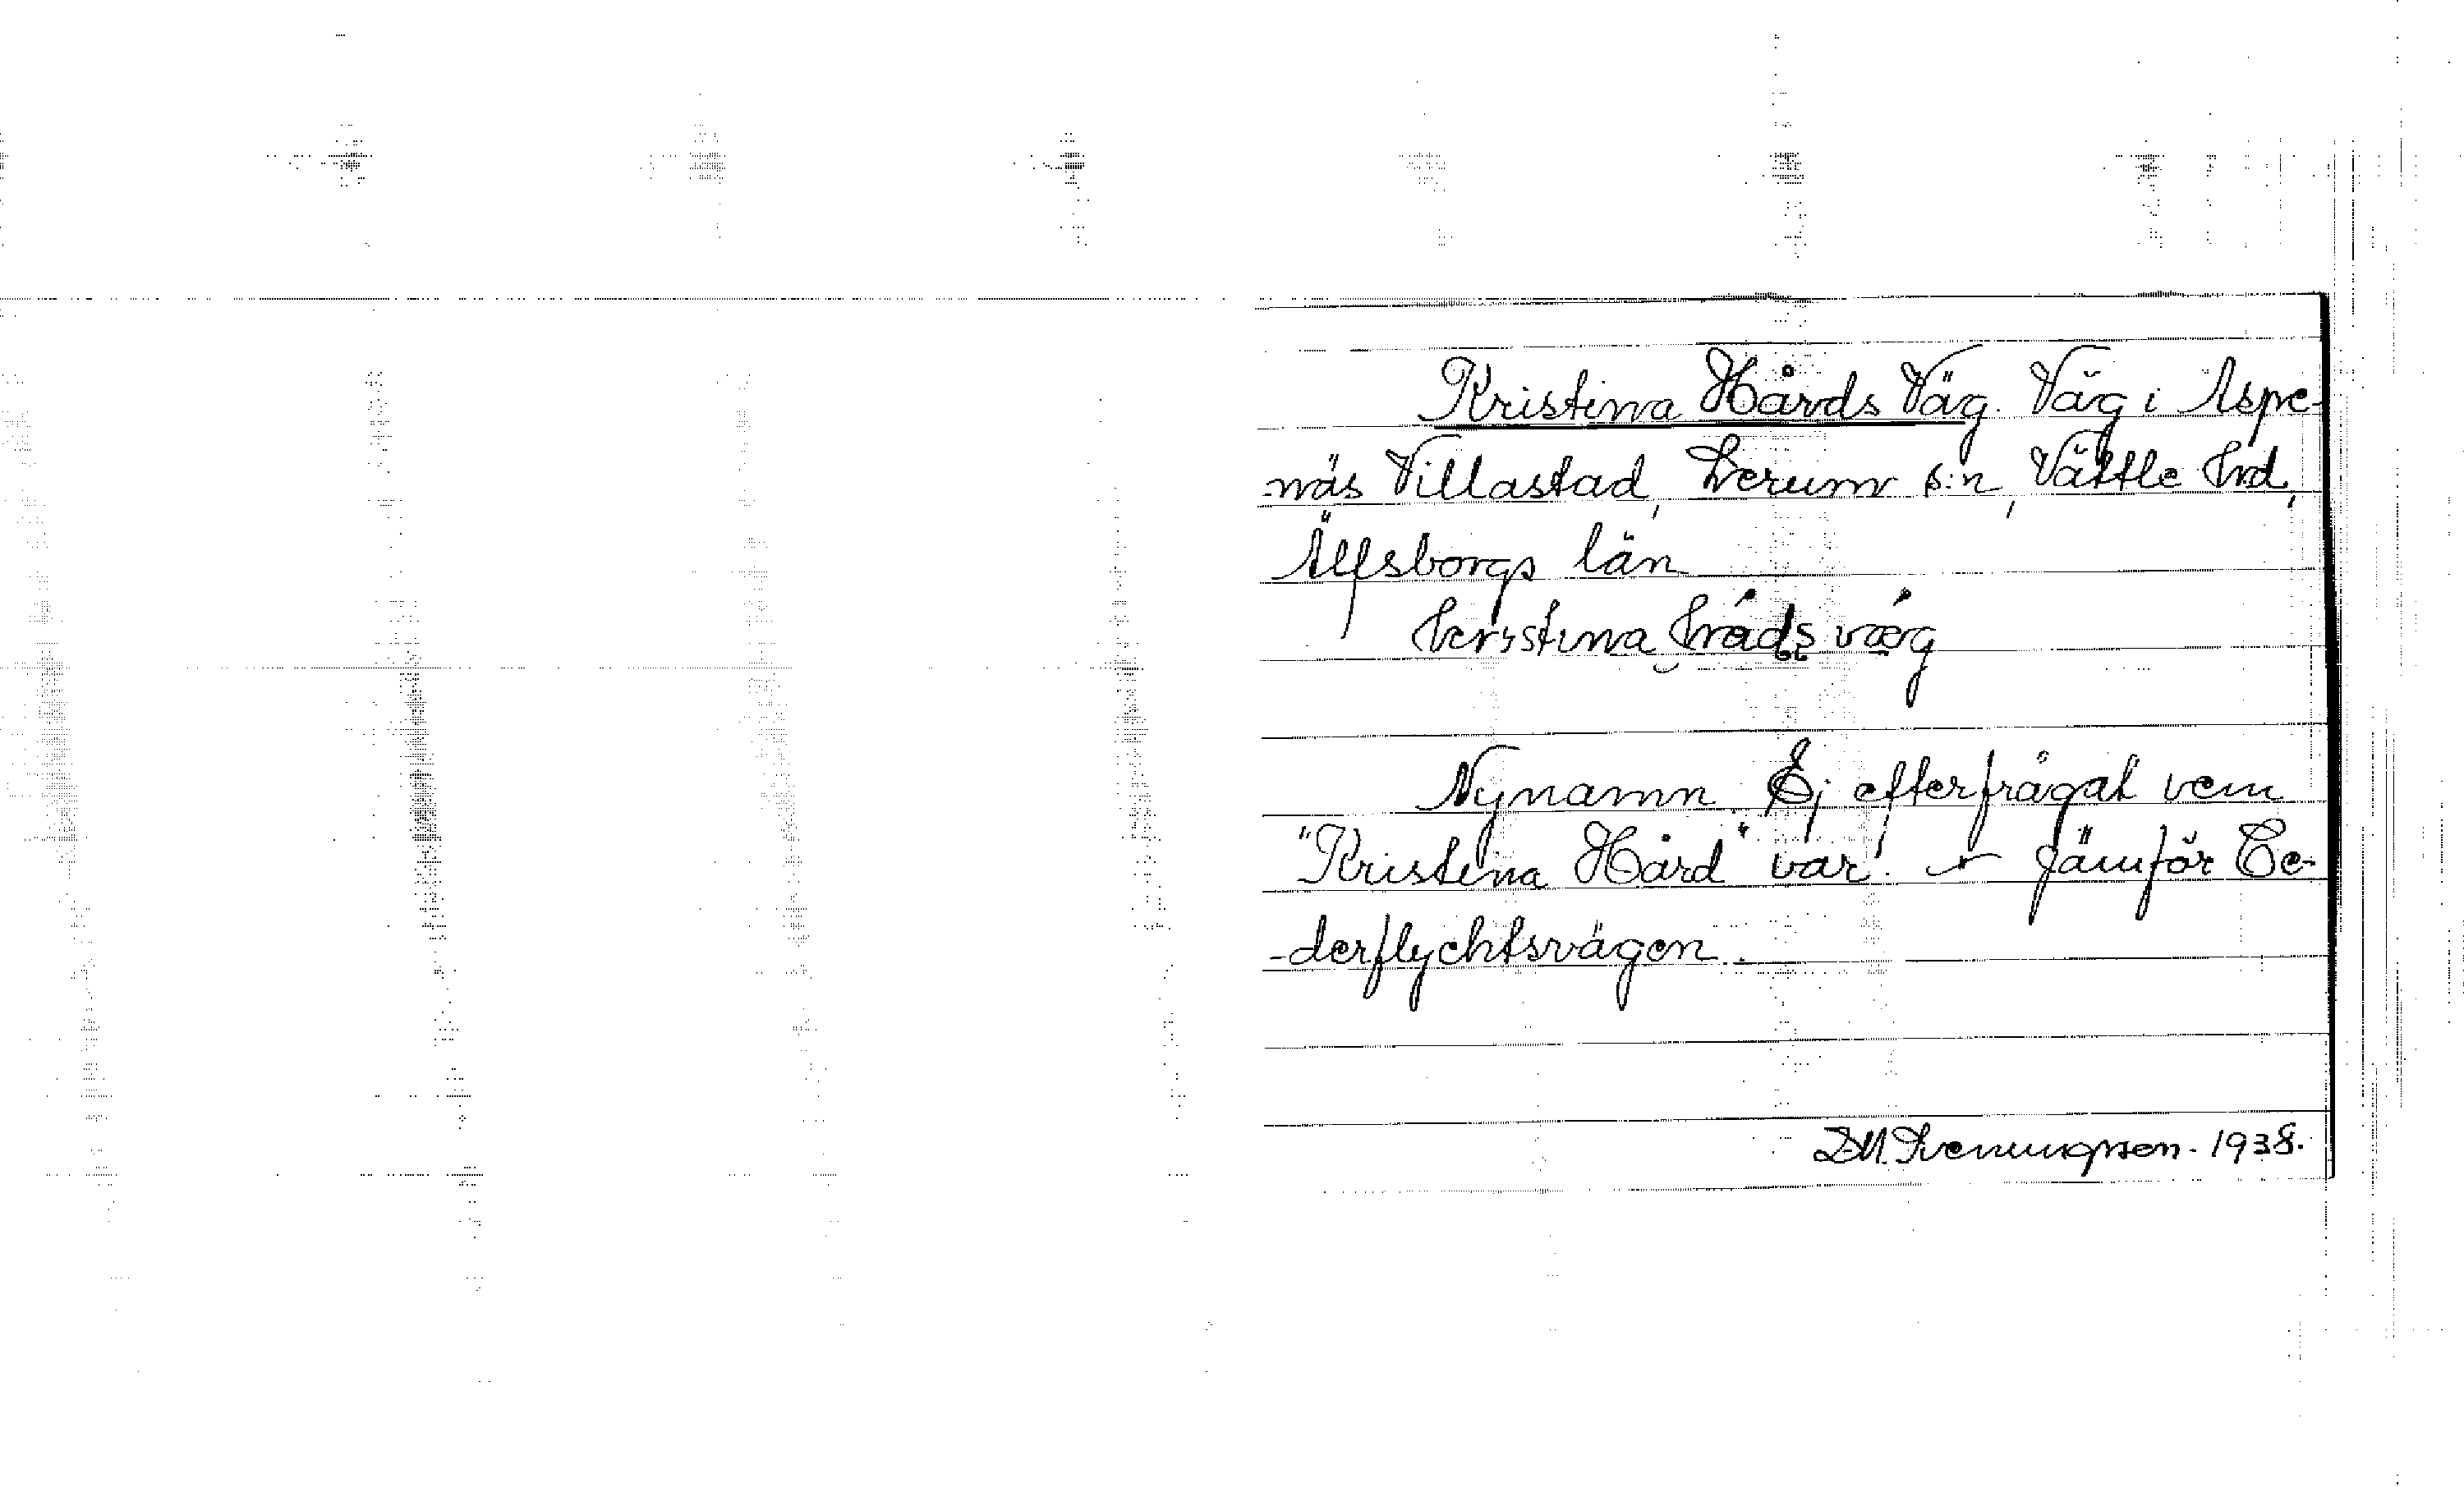 Kristina Hårds Väg. Väg i Aspe-
-näs Villastad, Lerum s:n, Vättle hd,
Älfsborgs län
Nynamn. Ej efterfrågat vem
"Kristina Hård" var! - Jämför Ce-
-derflychtsvägen.
1938.